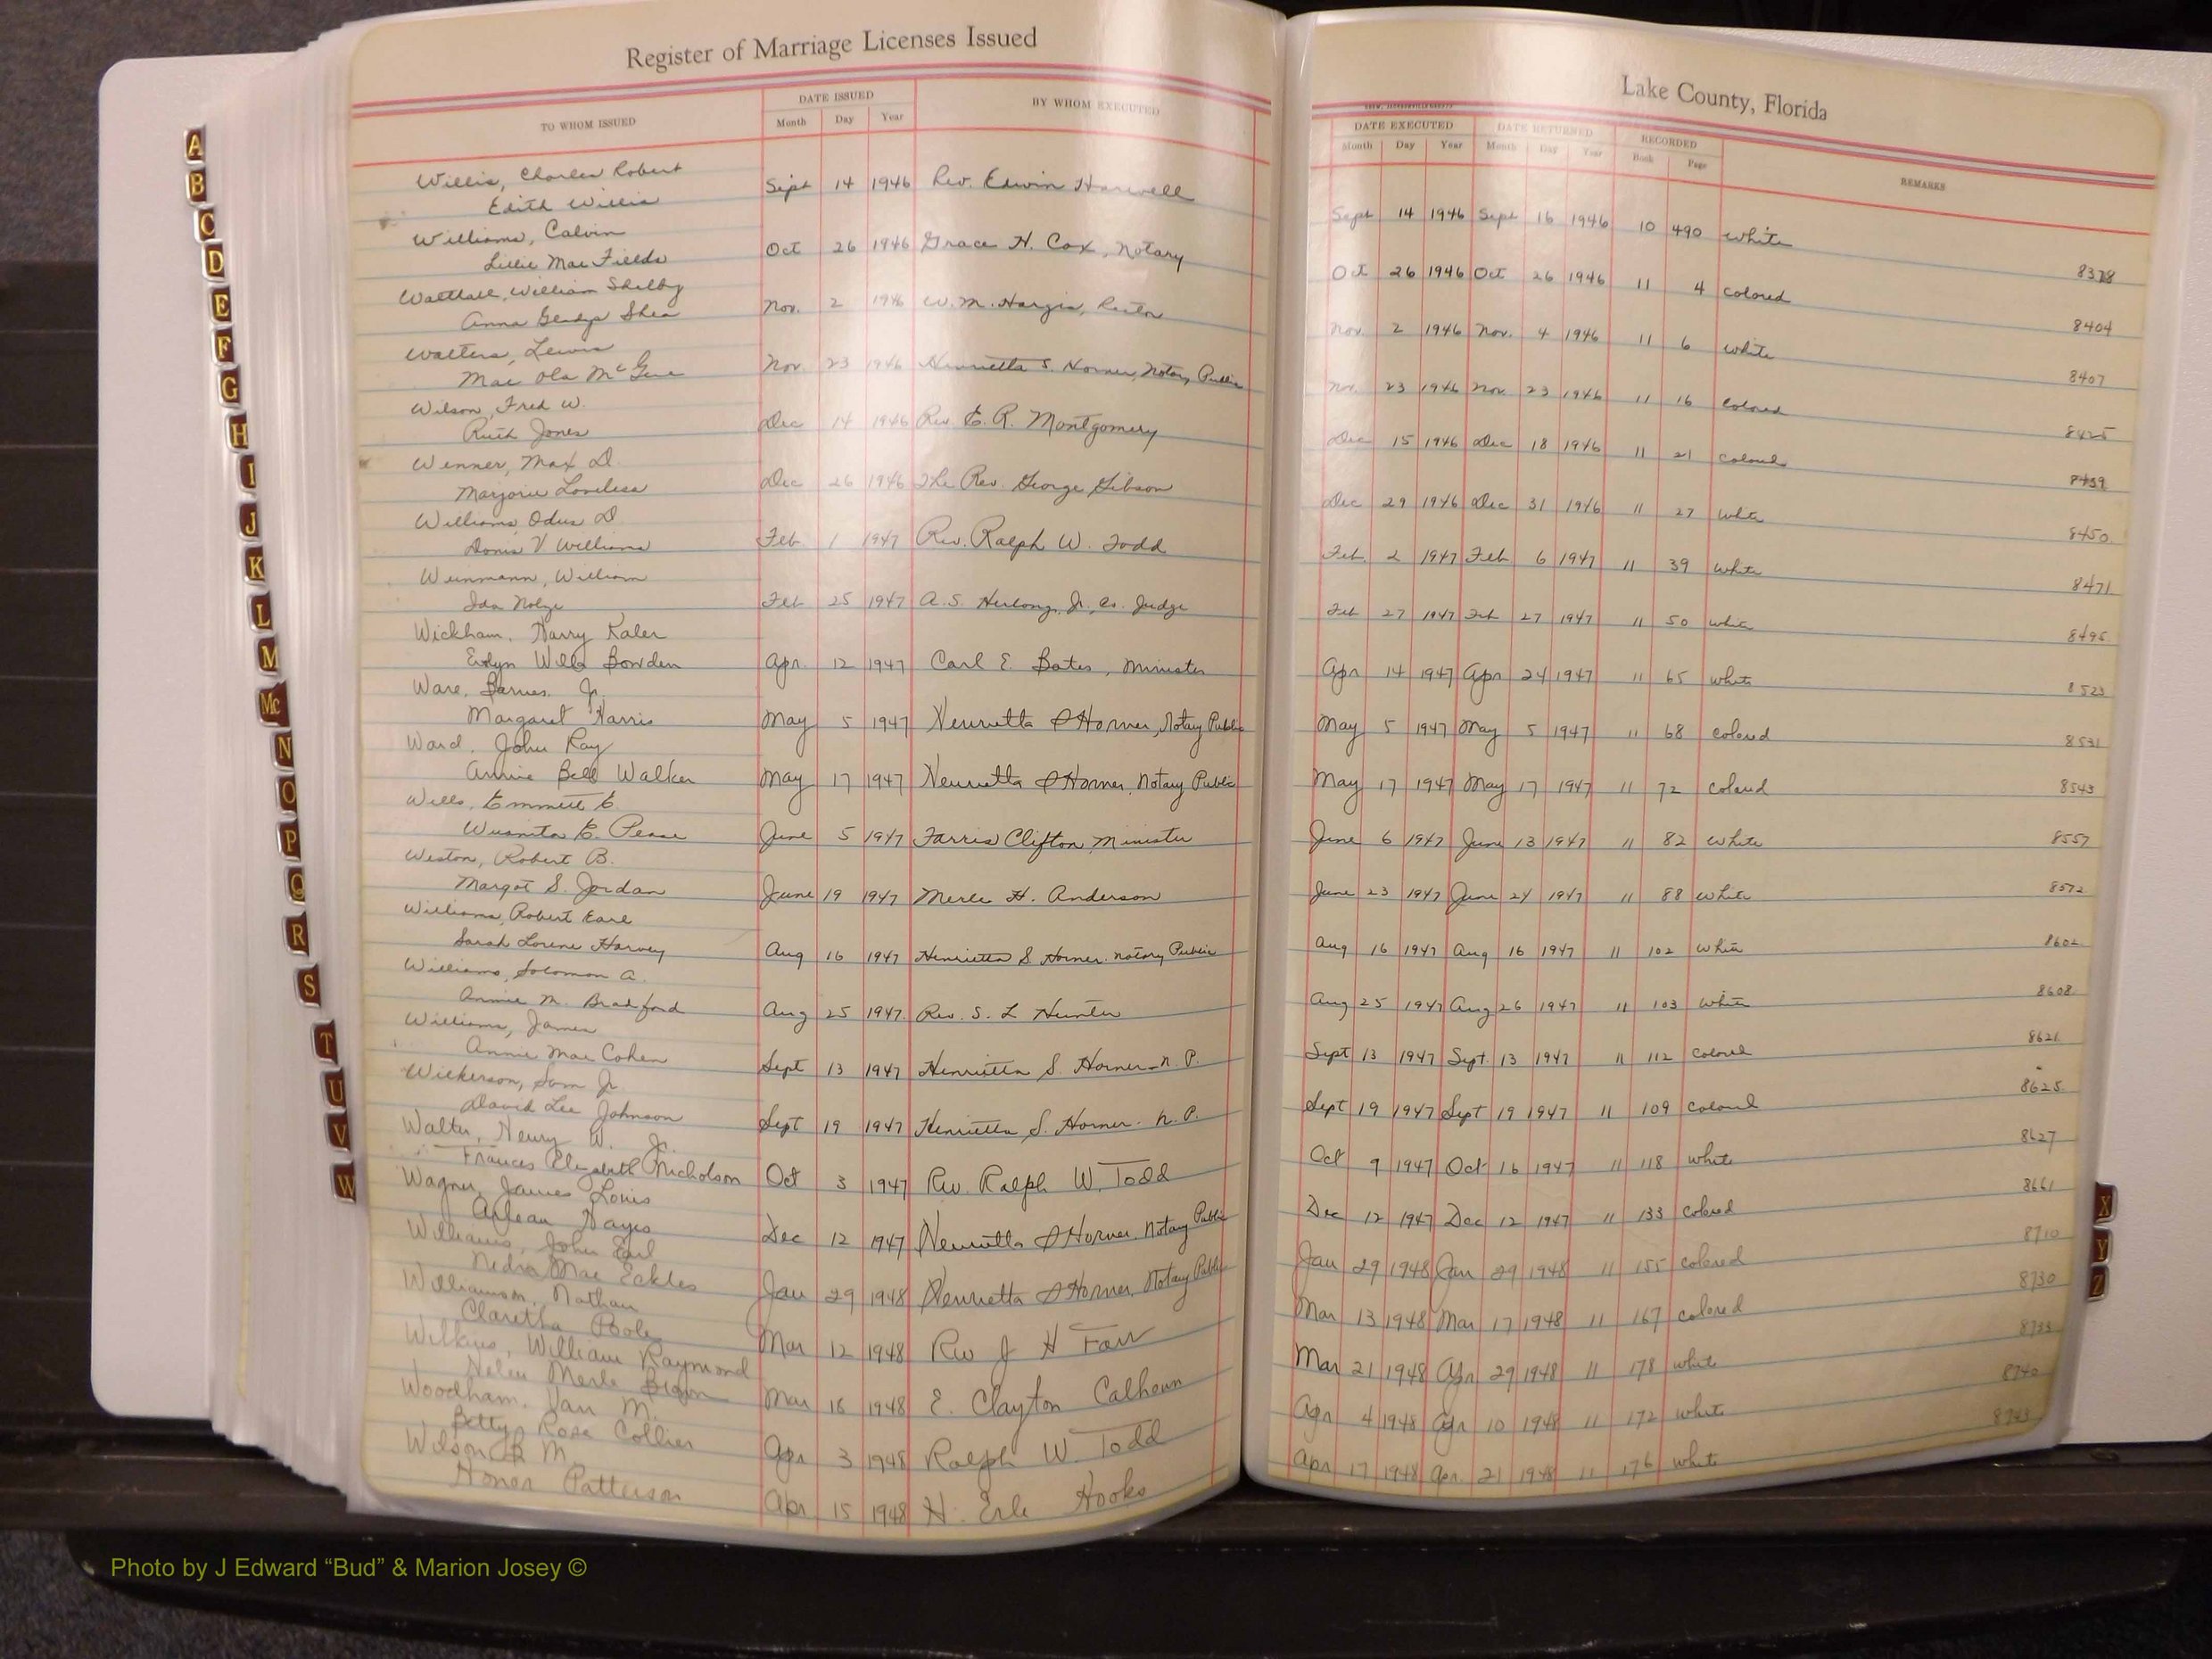 Register of Marriage Licenses Issued
TO WHOM ISSUED DATE ISSUED BY WHOM EXECUTED
Month Day Year
Willis, Charles Robert
Edith Willis Sept 14 1946 Rev. Edwin Harwell
Williams, Calvin
Lillie Mae Fields Oct 26 1946 Grace H. Cox, Notary
William Shelby
Anna Gladys Shea Nov. 2 1946 W. M. Hargis,
Walters, Lewis
Mae Ola Nov. 23 1946 Henrietta S. Horner, Notary Public
Wilson, Fred W.
Ruth Jones Dec 14 1946 Rev. E. R. Montgomery
Wenner, Max D.
Marjorie Loveless Dec 26 1946 The Rev. George Gibson
Williams, Odus D
V Williams Feb. 1 1947 Rev. Ralph W. Todd
Weinmann, William
Ida Feb 25 1947 A. S. Herlong, Jr. Co. Judge
Wickham, Harry Kaler
Evelyn Bowden Apr. 12 1947 Carl E. Bates, Minister
Ware, Barnes, Jr.
Margaret Harris May 5 1947 Henrietta S Horner, Notary Public
Ward, John Ray
Annie Bell Walker May 17 1947 Henrietta S Horner, Notary Public
Wells, Emmett E.
E. Pease June 5 1947 Farris Clifton, Minister
Weston, Robert B.
Margot S. Jordan June 19 1947 Merle H. Anderson
Williams, Robert Earl
Sarah Lorene Harvey Aug 16 1947 Henrietta S Horner. Notary Public
Williams, Solomon A.
Annie M. Bradford Aug 25 1947 Rev. S. L Hunter
Williams, James
Annie Mae Cohen Sept 13 1947 Henrietta S. Horner - N. P.
Wilkerson, Sam Jr.
David Lee Johnson Sept 19 1947 Henrietta S. Horner - N. P.
Walter, Henry W. Jr.
Frances Elizabeth Nicholson Oct 3 1947 Rev. Ralph W. Todd
Wagner, James Louis
Arlean Hayes Dec 12 1947 Henrietta S Horner Notary Public
Williams, John Earl
Nedra Mae Eckles Jan 29 1948 Henrietta S Horner, Notary Public
Williamson, Nathan
Claretha Poole Mar 12 1948 Rev J H Farr
Wilkins, William Raymond
Helen Merle Mar 16 1948 E. Clayton Calhoun
Woodham, Van M.
Betty Rose Collier Apr 3 1948 Ralph W. Todd
Wilson, R M.
Honor Patterson Apr 15 1948 H. Erle Hooks
Lake County, Florida
DATE EXECUTED DATE RETURNED RECORDED REMARKS
Month Day Year Month Day Year Book Page
Sept 14 1946 Sept 16 1946 10 490 white
8378
Oct 26 1946 Oct 26 1946 11 4 colored
8404
Nov. 2 1946 Nov. 4 1946 11 6 white
8407
Nov. 23 1946 Nov. 23 1946 11 16 colored
8425
Dec 15 1946 Dec 18 1946 11 21 colored
8439
Dec 29 1946 Dec 31 1946 11 27 white
8450
Feb. 2 1947 Feb 6 1947 11 39 white
8471
Feb 27 1947 Feb 27 1947 11 50 white
8495
Apr 14 1947 Apr 24 1947 11 65 white
8523
May 5 1947 May 5 1947 11 68 colored
8531
May 17 1947 May 17 1947 11 72 colored
8543
June 6 1947 June 13 1947 11 82 white
8557
June 23 1947 June 24 1947 11 88 white
8572
Aug 16 1947 Aug 16 1947 11 102 white
8602
Aug 25 1947 Aug 26 1947 11 103 white
8608
Sept 13 1947 Sept. 13 1947 11 112 colored
8621
Sept 19 1947 Sept 19 1947 11 109 colored
8625
Oct 9 1947 Oct 16 1947 11 118 white
8627
Dec 12 1947 Dec 12 1947 11 133 colored
8661
Jan 29 1948 Jan 29 1948 11 155 colored
8710
Mar 13 1948 Mar 17 1948 11 167 colored
8730
Mar 21 1948 Apr 29 1948 11 178 white
Apr 4 1948 Apr 10 1948 11 172 white
8740
Apr 17 1948 Apr. 21 1948 11 176 white
8743
A
B
C
D
E
F
G
H
I
J
K
L
M
Mc
N
O
P
Q
R
S
T
U
V
W
X
Y
Z
Photo by J Edward “Bud” & Marion Josey ©